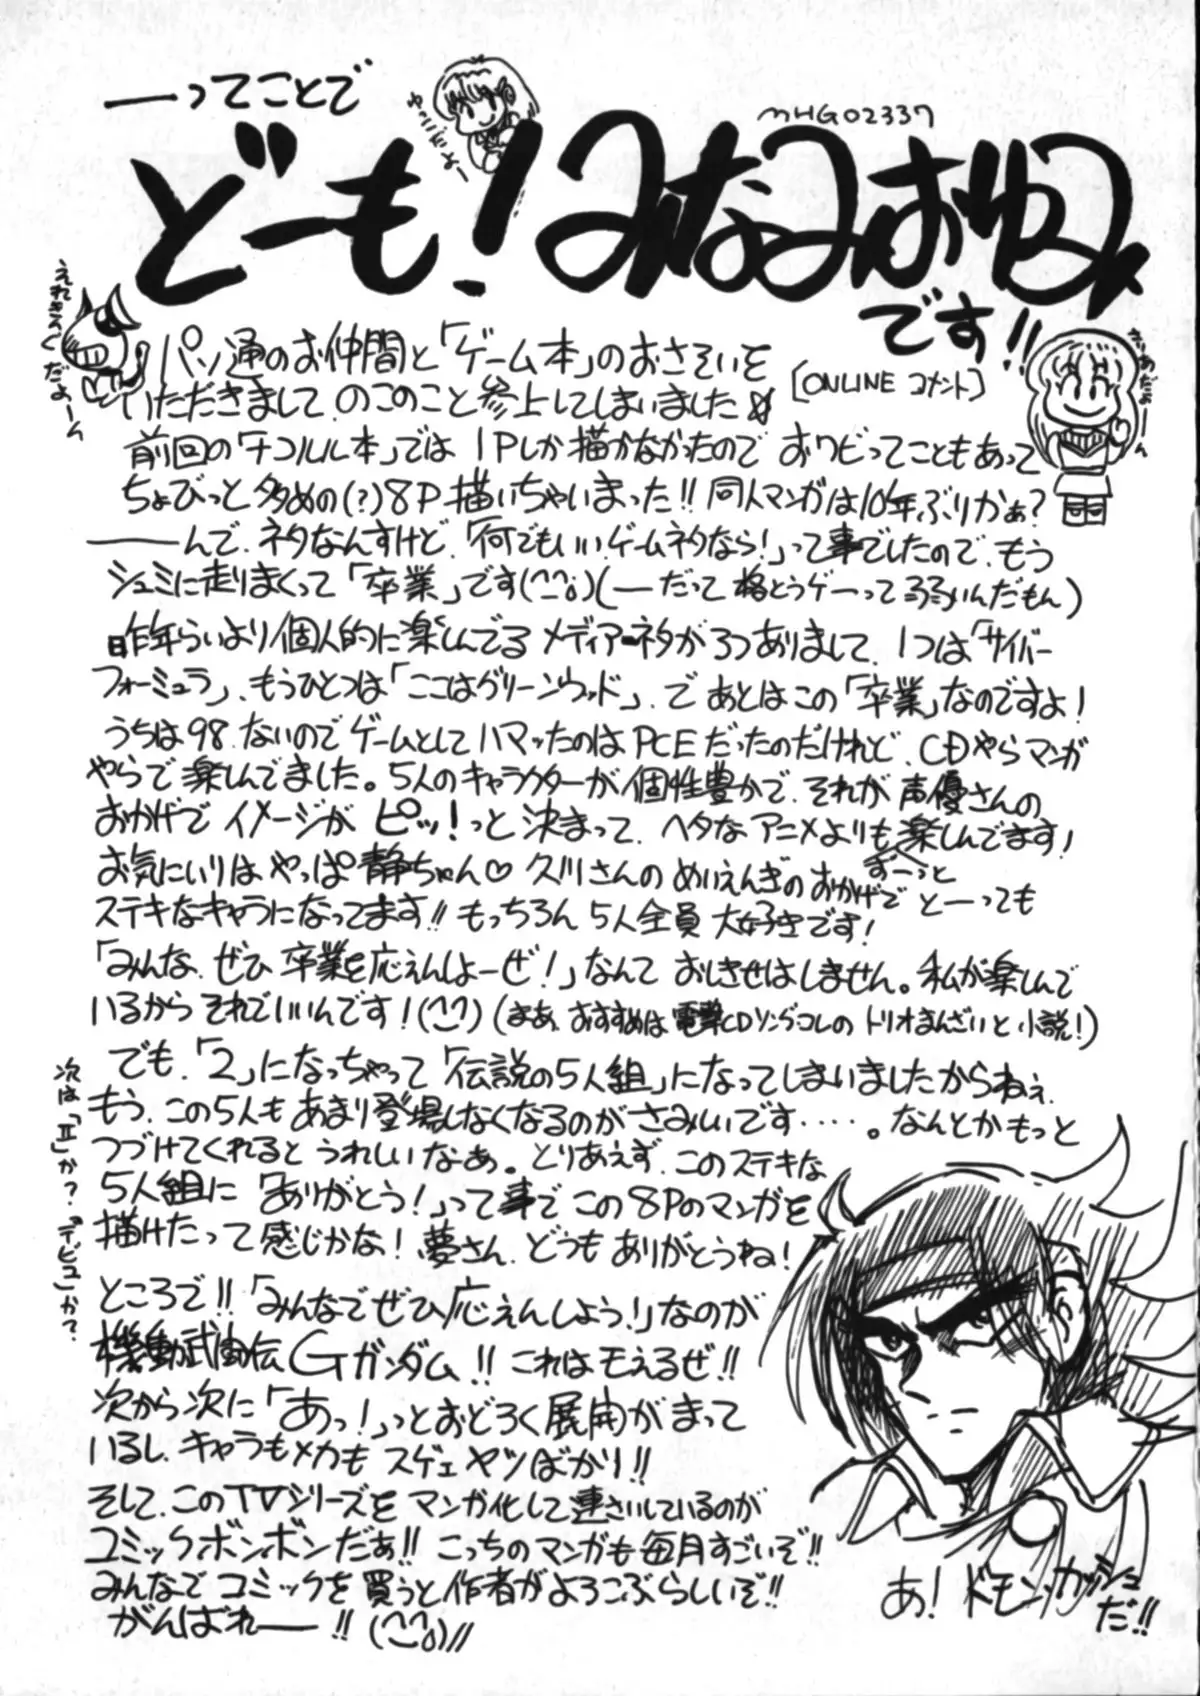 ―ってことで
ゆーこだよー
MHG02337
どーも!みなみおゆみ
です!!
えれきんぐだよーん
きりあだよーん
パソ通のお仲間と「ゲーム本」のおさそいを
いただきまして、のこのこと参上してしまいました
[ONLINE コメント]
前回の「ナコルル本」では 1Pしか描かなかったので おワビってこともあって
ちょびっと多めの(?)8P描いちゃいまった!!同人マンガは10年ぶりかぁ?
―――んで、ネタなんすけど、「何でもいい、ゲームネタなら!」って事でしたので、もう
シュミに走りまくって「卒業」です(^^;)(―だって 格とうゲーって弱いんだもん)
昨年らいより個人的に楽しんでるメディアネタが3つありまして、1つは「サイバー
フォーミュラ」、もうひとつは「ここはグリーンウッド」、で あとはこの「卒業」なのですよ!
うちは98、ないのでゲームとしてハマッたのはPCEだったのだけれど、CDやらマンガ
やらで楽しんでました。5人のキャラクターが個性豊かで、それが声優さんの
おかげでイメージがピッ!っと決まって、ヘタなアニメよりも
ずーっと
楽しんでます!
お気にいりはやっぱ静ちゃん♡久川さんのめいえんぎのおかげでとーっても
ステキなキャラになってます!!もっちろん5人全員大好きです!
「みんな、ぜひ卒業を応えんしよーぜ!」なんておしきせはしません。私が楽しんで
いるからそれでいいんです!(^^)(まあ、おすすめは電撃CDソングコレのトリオまんざいと小説!)
でも、「2」になっちゃって「伝説の5人組」になってしまいましたからねぇ、
もう、この5人もあまり登場しなくなるのがさみしいです‥‥‥。なんとかもっと
つづけてくれるとうれしいなあ。とりあえず、このステキな
5人組に「ありがとう!」って事でこの8Pのマンガを
描けたって感じかな!夢さん、どうもありがとうね!
次は「Ⅱ」か?「デビュー」か?
ところで!!「みんなでぜひ応えんしよう!」なのが
機動武闘伝Gガンダム!!これはモえるぜ!!
次から次に「あっ!」っとおどろく展開がまって
いるし、キャラもメカもスゲェヤツばかり!!
そして、このTVシリーズをマンガ化して連さいしているのが
コミックボンボンだぁ!!こっちのマンガも毎月すごいぞ!!
みんなでコミックを買うと作者がよろこぶらしいぞ!!
がんばれ――!!(^^;)//
あ!ドモン・カッシュ
だ!!